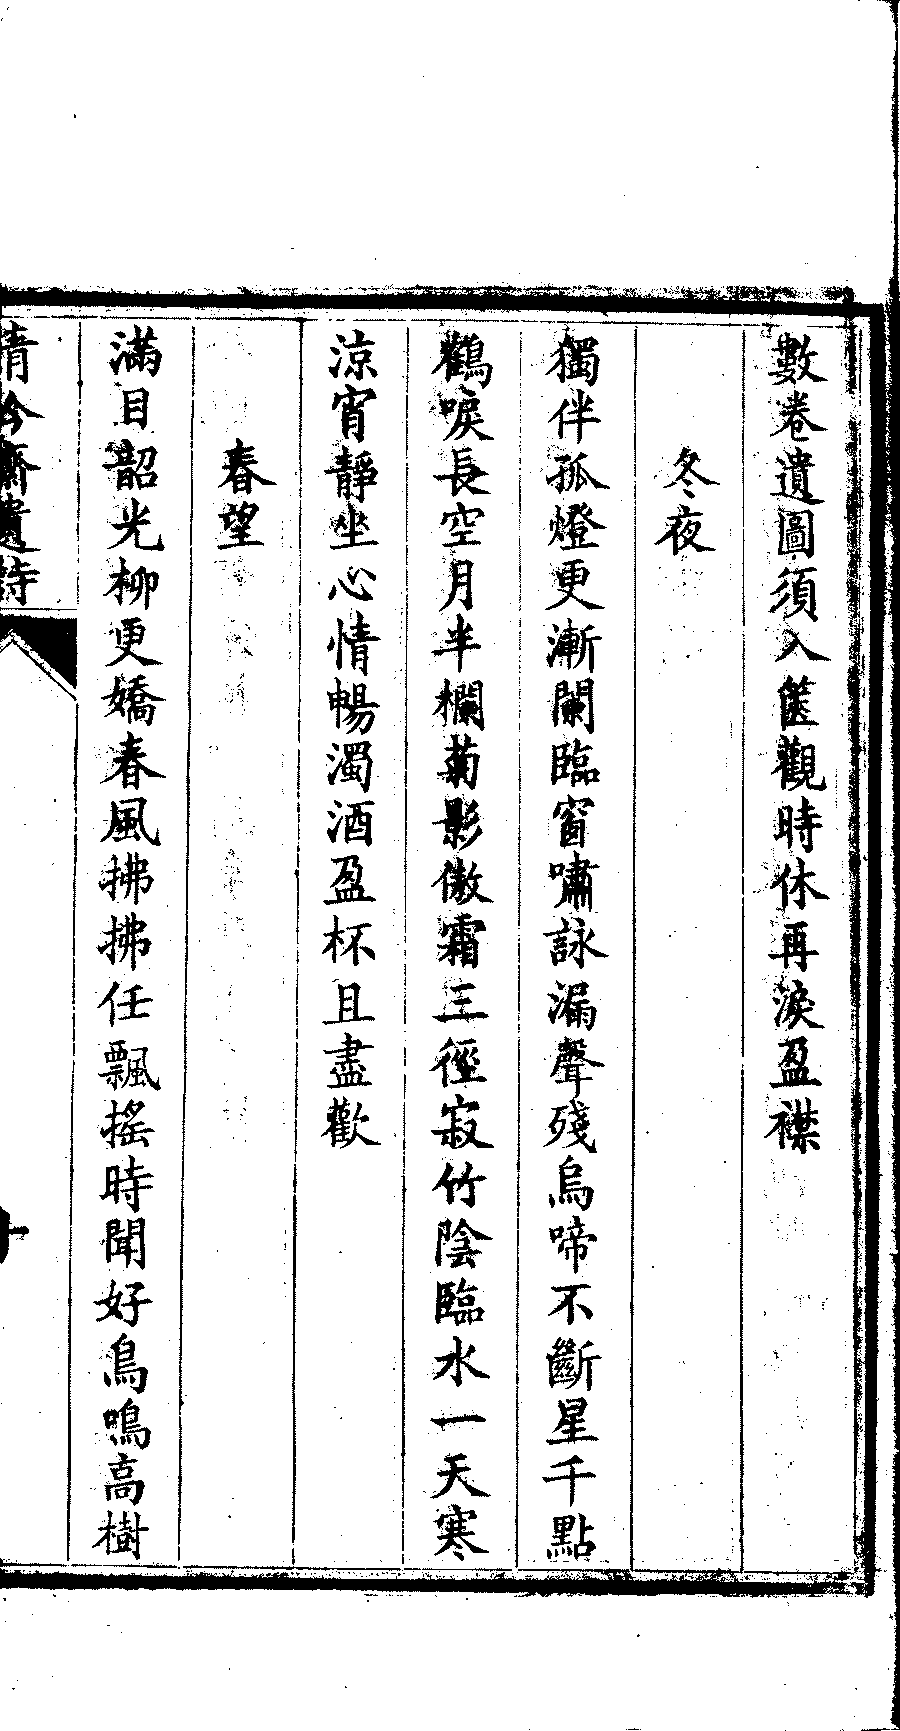 數卷遺圖須入篋觀時休再淚盈襟
冬夜
獨伴孤燈更漸闌臨窗嘯詠漏聲殘烏啼不斷星千點
鸛唳長空月半欄菊影傲霜三徑寂竹陰臨水一天寒
涼宵靜坐心情暢濁酒盈杯且盡歡
春望
滿目韶光柳更嬌春風拂拂任飄搖時聞好鳥鳴高樹
清吟齋遺詩
十